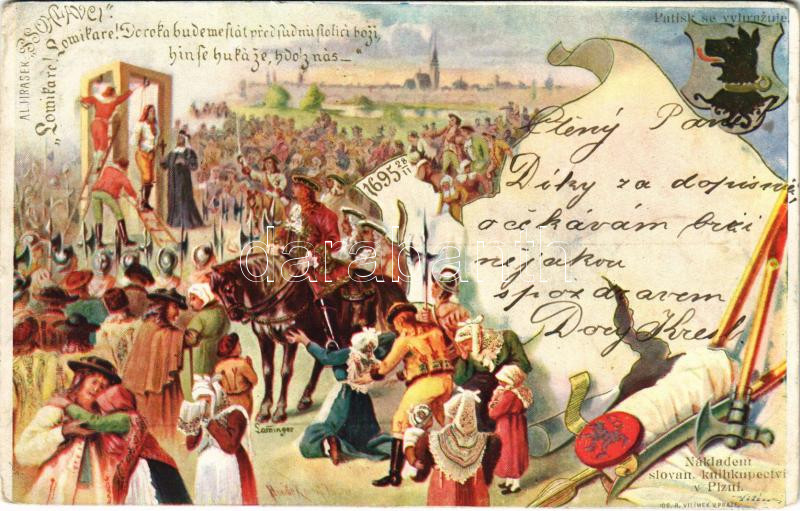 AL. JIRASEK „PSOHLAVCI“
„Lomikare! Lomikare! Do roka budeme stát před súdnú stolicí boží,
hin se huká že, hdo z nás—“
Patisk se vyhražuje.
1695 28/11
Ctěný Pane
Díky za dopisnici
očekávám brzi
nejakou
s pozdravem
Dory
Laminger
darabanth
Nákladem
slovan. knihkupectví
v Plzni.